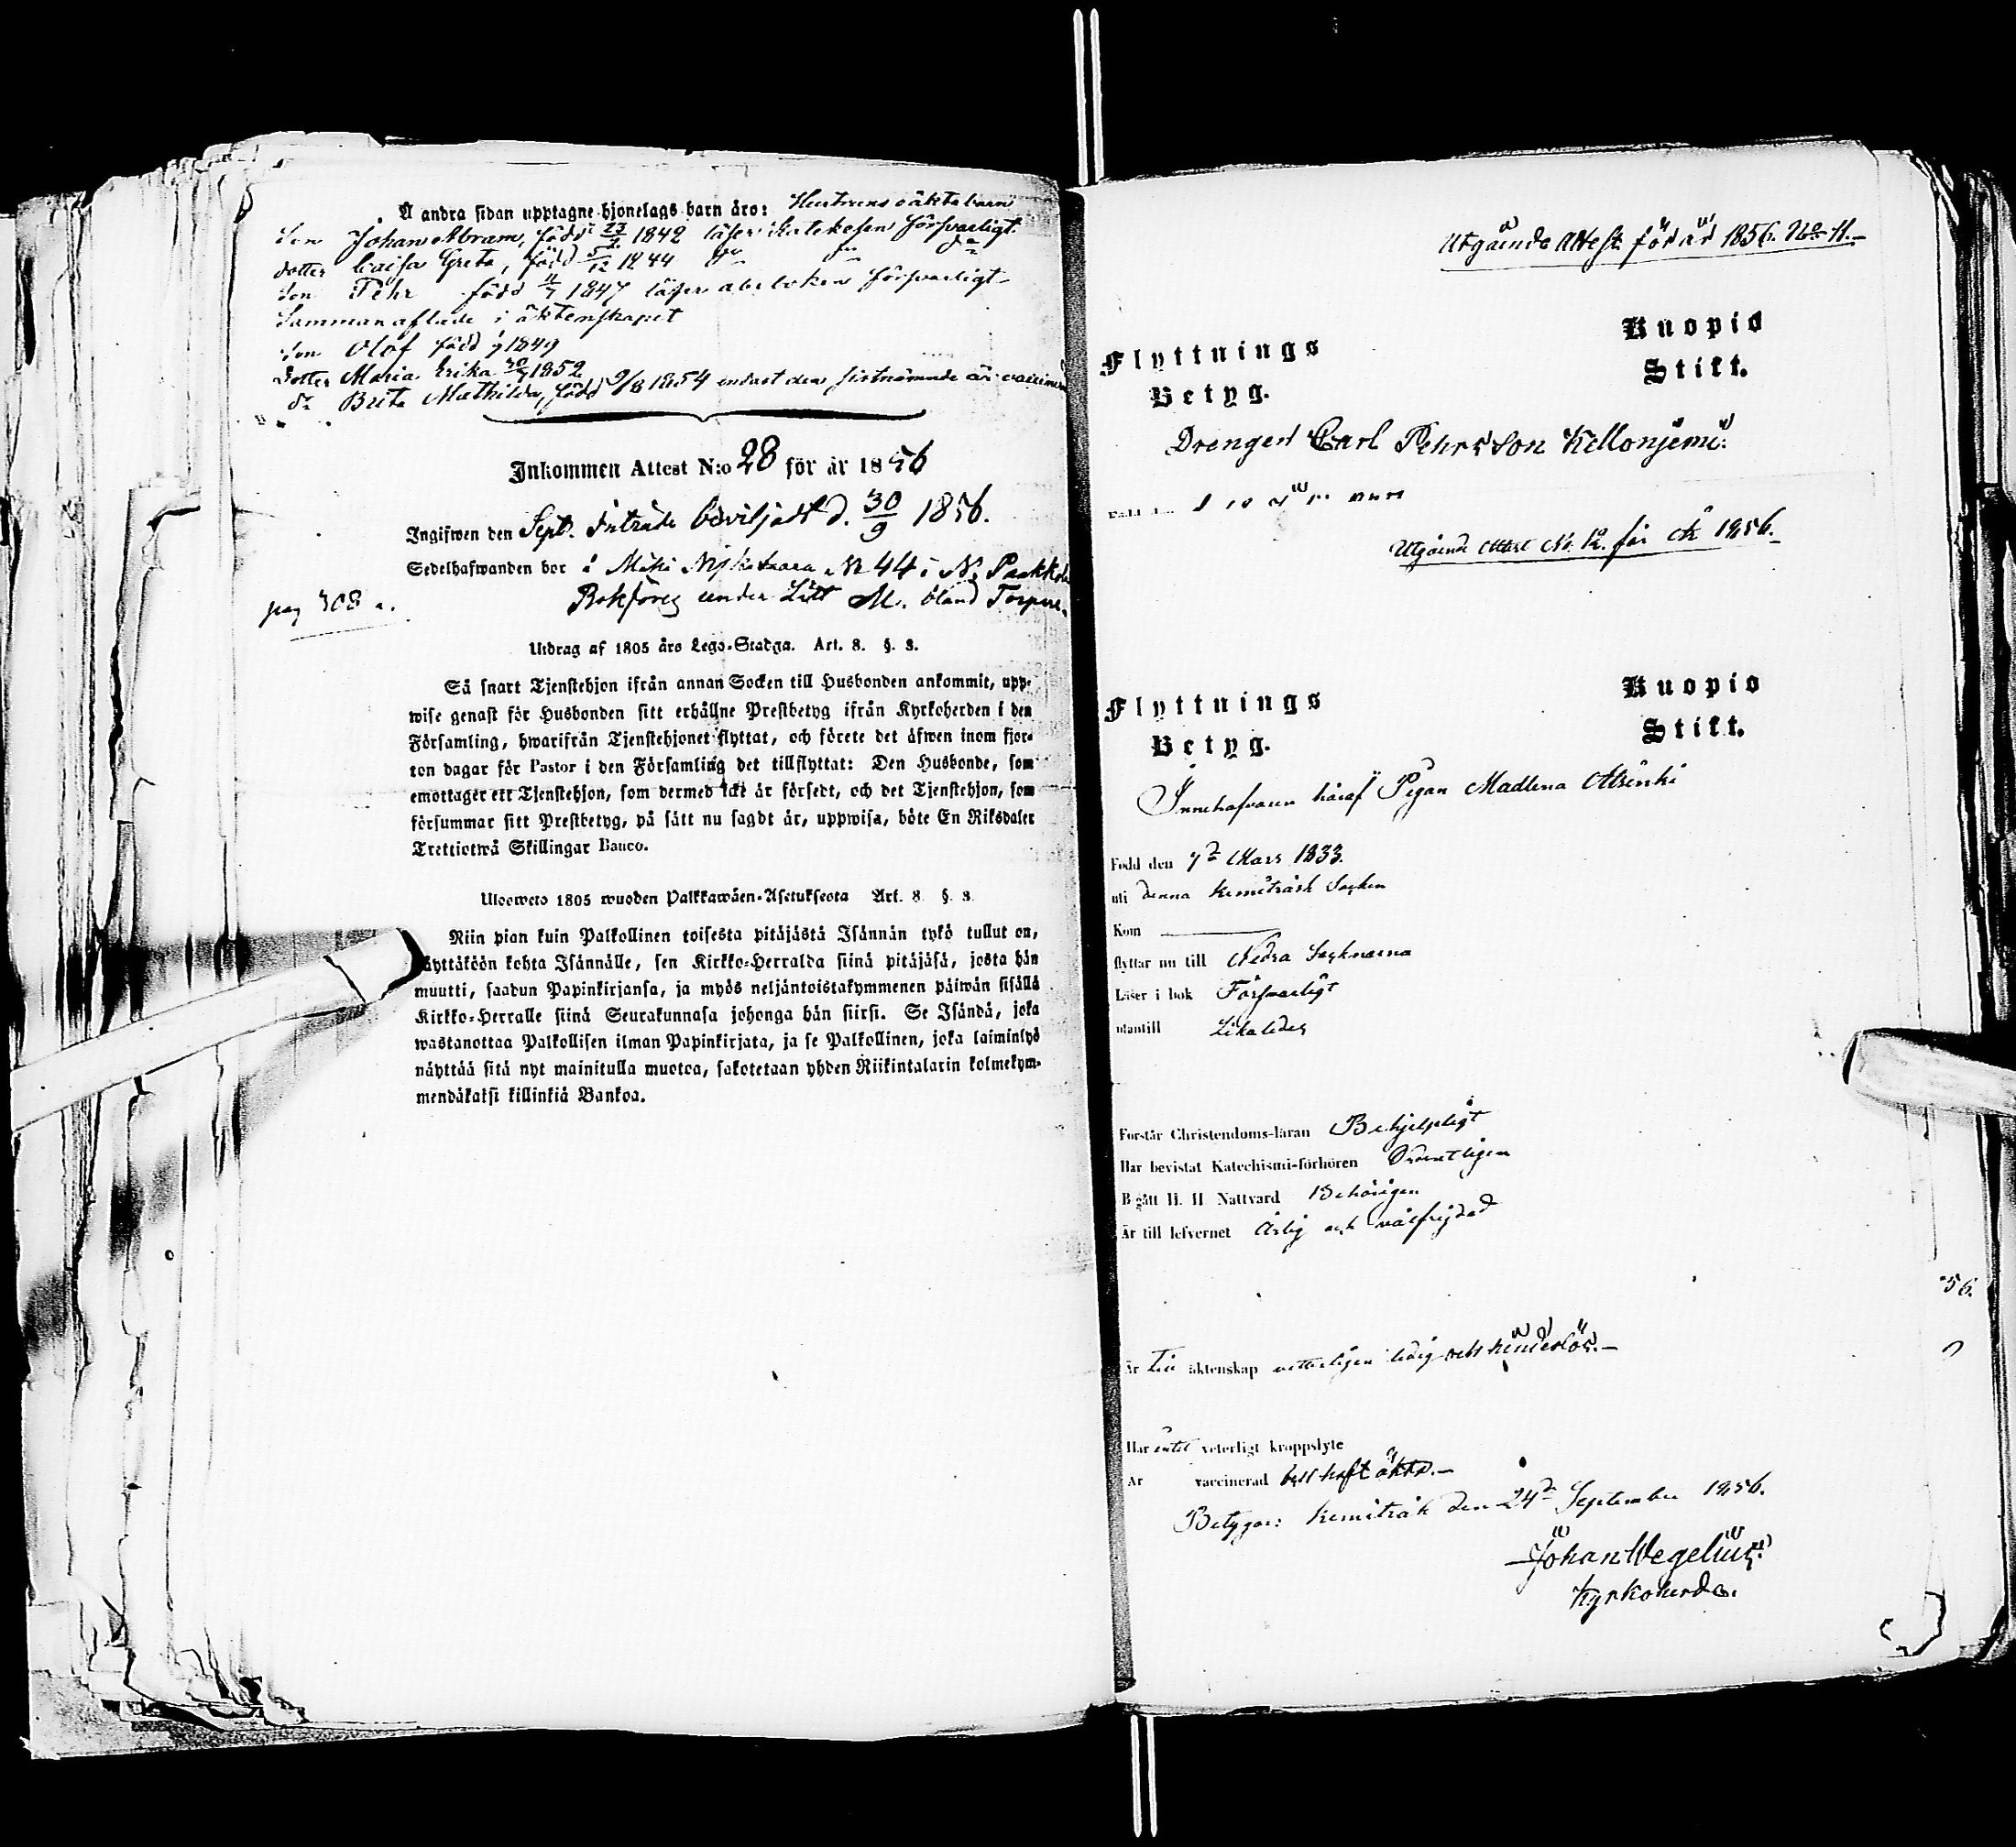 Å andra sidan upptagne hjonelags barn äro: Hustruns oäkta barn
Son Johan Abram, född 23/2 1842 läser Katekesen försvarligt
dotter Caisa Greta, född 5/12 1844 do do do
Son Pehr född 11/7 1847 läser abcboken försvarligt
Sammanaflade i äktenskapet
Son Olof född 1849
Dotter Maria Erika 30/7 1852
do Brita Mathilda, född 9/8 1854 endast den sistnämnde är
Inkommen Attest N:o 28 för år 1856
Ingifwen den Sept. Inträde beviljadt d. 30/9 1856.
Sedelhafwanden bor å № 44 i N.
pag 308
Bokföres under Litt M. bland
Utdrag af 1805 års Lego-Stadga. Art. 8. §. 3.
Så snart Tjenstehjon ifrån annan Socken till Husbonden ankommit, upp-
wise genast för Husbonden sitt erhållne Prestbetyg ifrån Kyrkoherden i den
Församling, hwarifrån Tjenstehjonet flyttat, och förete det äfwen inom fjor-
ton dagar för Pastor i den Församling det tillflyttat: Den Husbonde, som
emottager ett Tjenstehjon, som dermed icke är försedt, och det Tjenstehjon, som
försummar sitt Prestbetyg, på sätt nu sagdt är, uppwisa, böte En Riksdaler
Trettiotwå Skillingar Banco.
Uloswето 1805 wuoden Palkkawäen-Asetuksesta Art. 8 §. 3.
Niin pian kuin Palkollinen toisesta pitäjästä Isännän tykö tullut on,
näyttäköön kohta Isännälle, sen Kirkko-Herralda siinä pitäjäsä, josta hän
muutti, saadun Papinkirjansa, ja myös neljäntoistakymmenen päiwän sisällä
Kirkko-Herralle siinä Seurakunnasa johonga hän siirsi. Se Isändä, joka
wastanottaa Palkollisen ilman Papinkirjata, ja se Palkollinen, joka laiminlyö
näyttää sitä nyt mainitulla muotoa, sakotetaan yhden Riikintalarin kolmekym-
mendäkaksi killinkiä Bankoa.
Utgående Attest för år 1856. No 11.
Flyttnings Kuopio
Betyg. Stift.
Drengen Carl Pehrsson Kellonjemi
Utgående Attest No. 12. för år 1856.
Flyttnings Kuopio
Betyg. Stift.
Innehafvaren häraf Pigan Madlena
Född den 7de Mars 1833.
uti denna Kemiträsk Socken
Kom
flyttar nu till Nedra Socknarna
Läser i bok Försvarligt
utantill Likaledes
Förstår Christendoms-läran Behjelpligt
Har bevistat Katechismi-förhören Ordentligen
Begått H. H. Nattvard Behörigen
Är till lefvernet Ärlig och välfrejdad
Är till äktenskap vetterligen ledig och hinderlös.
Har intet veterligt kroppslyte
Är vaccinerad
Betygar: Kemiträsk den 24de September 1856.
Johan Wegelius
Kyrkoherde.
56.